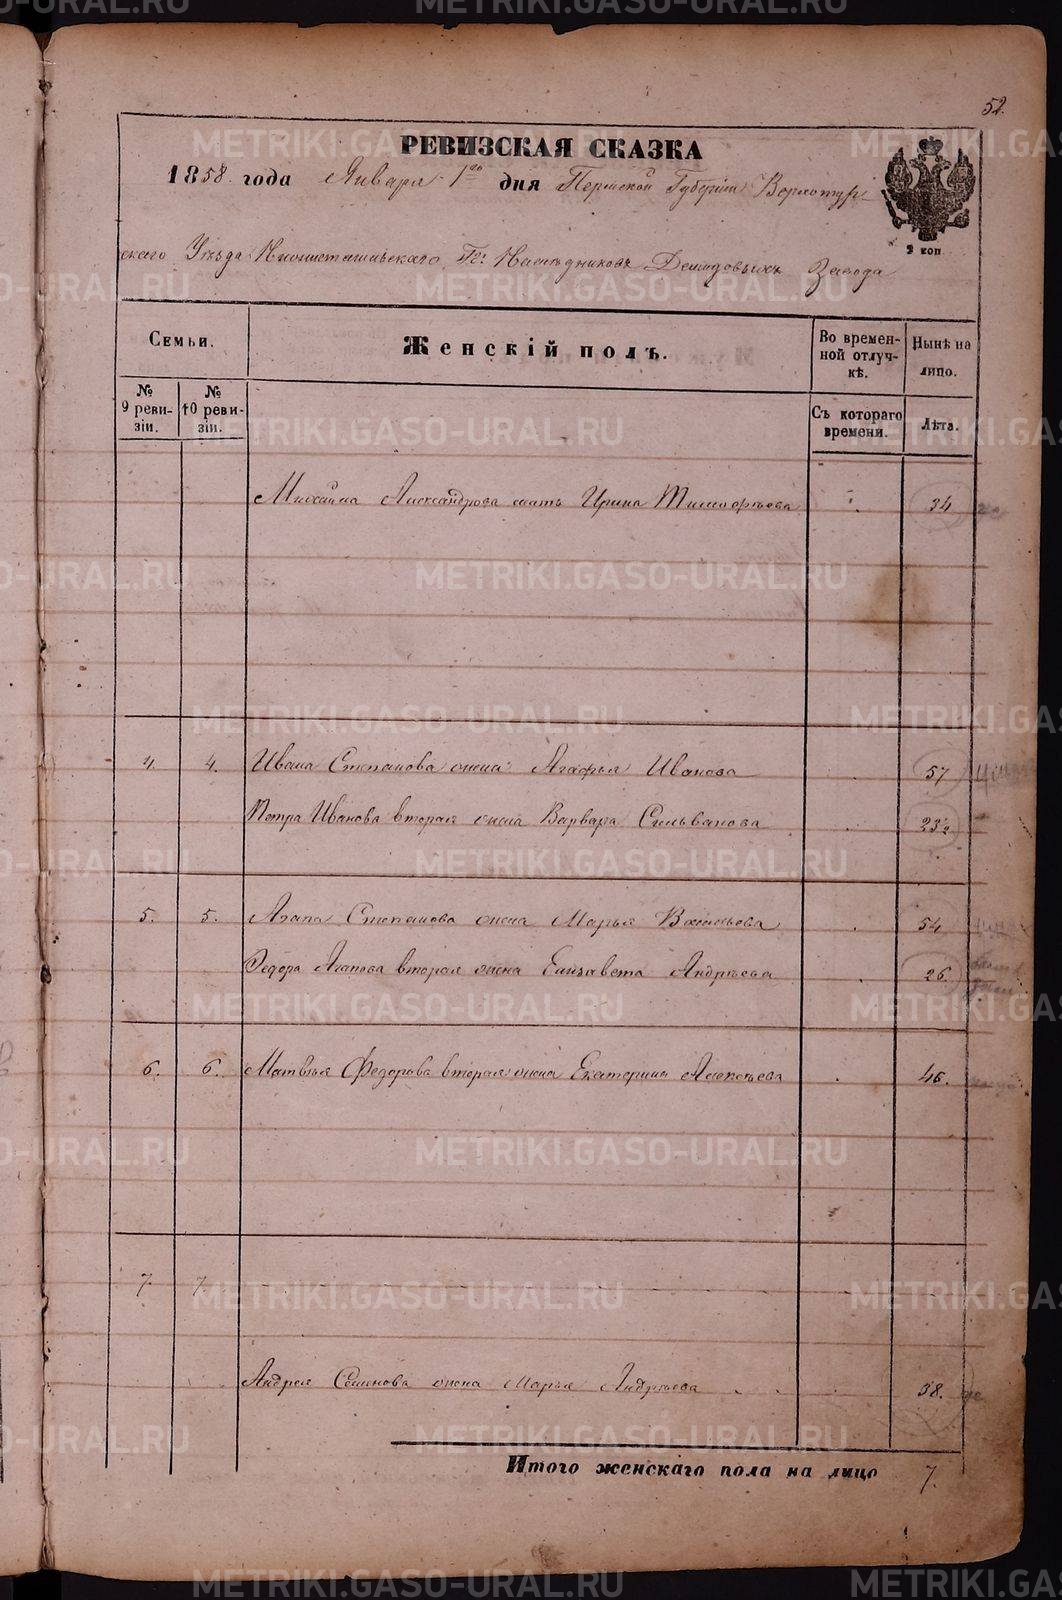 52.
РЕВИЗСКАЯ СКАЗКА
1858. года Января 1го дня Пермской Губерніи Верхотур-
скаго Уѣзда Нижнетагильскаго Гг. Наслѣдниковъ Демидовыхъ Завода
2 коп
Семьи. Женскій полъ. Во времен- Нынѣ на
ной отлуч- лицо.
кѣ.
№ №
9 реви- 10 реви- Съ котораго Лѣта.
зіи. зіи. времени.
Михайла Александрова мать Ирина Тимофѣева 34
4. 4. Ивана Степанова жена Агафья Иванова 57
Петра Иванова вторая жена Варвара Сильванова 23½
5. 5. Агапа Степанова жена Марья 54
Федора Агапова вторая жена Елизавета Андрѣева 26.
6. 6. Матвѣя Федорова вторая жена Екатерина Алексѣева 46.
7. 7.
Андрея Семенова жена Марья Андрѣева 38.
Итого женскаго пола на лицо 7.
METRIKI.GASO-URAL.RU